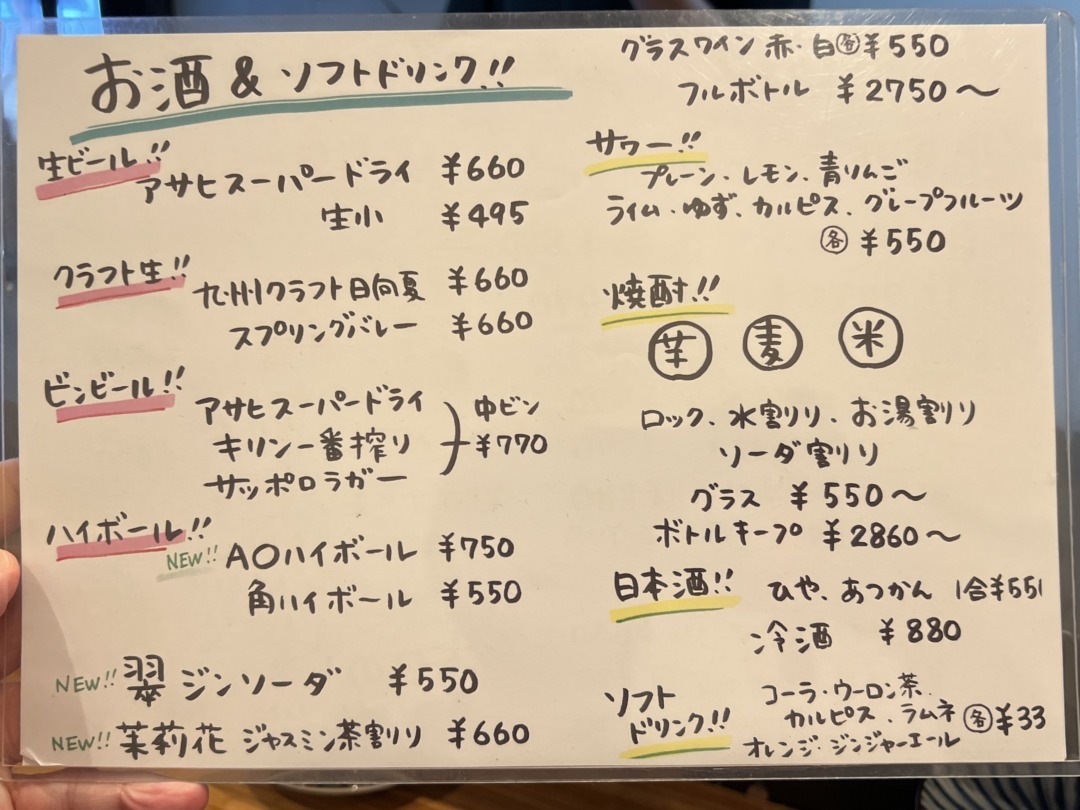 お酒 & ソフトドリンク!!
生ビール!!
アサヒスーパードライ ¥660
生小 ¥495
クラフト生!!
九州クラフト日向夏 ¥660
スプリングバレー ¥660
ビンビール!!
アサヒスーパードライ
キリン一番搾り
サッポロラガー
中ビン
¥770
ハイボール!!
NEW!! AOハイボール ¥750
角ハイボール ¥550
NEW!! 翠 ジンソーダ ¥550
NEW!! 茉莉花 ジャスミン茶割り ¥660
グラスワイン 赤・白 各 ¥550
フルボトル ¥2750〜
サワー!!
プレーン・レモン、青りんご
ライム・ゆず、カルピス、グレープフルーツ
各 ¥550
焼酎!!
芋 麦 米
ロック、水割り、お湯割り
ソーダ割り
グラス ¥550〜
ボトルキープ ¥2860〜
日本酒!! ひや、あつかん 1合¥55
冷酒 ¥880
ソフト
ドリンク!!
コーラ・ウーロン茶
カルピス、ラムネ 各 ¥33
オレンジ・ジンジャーエール